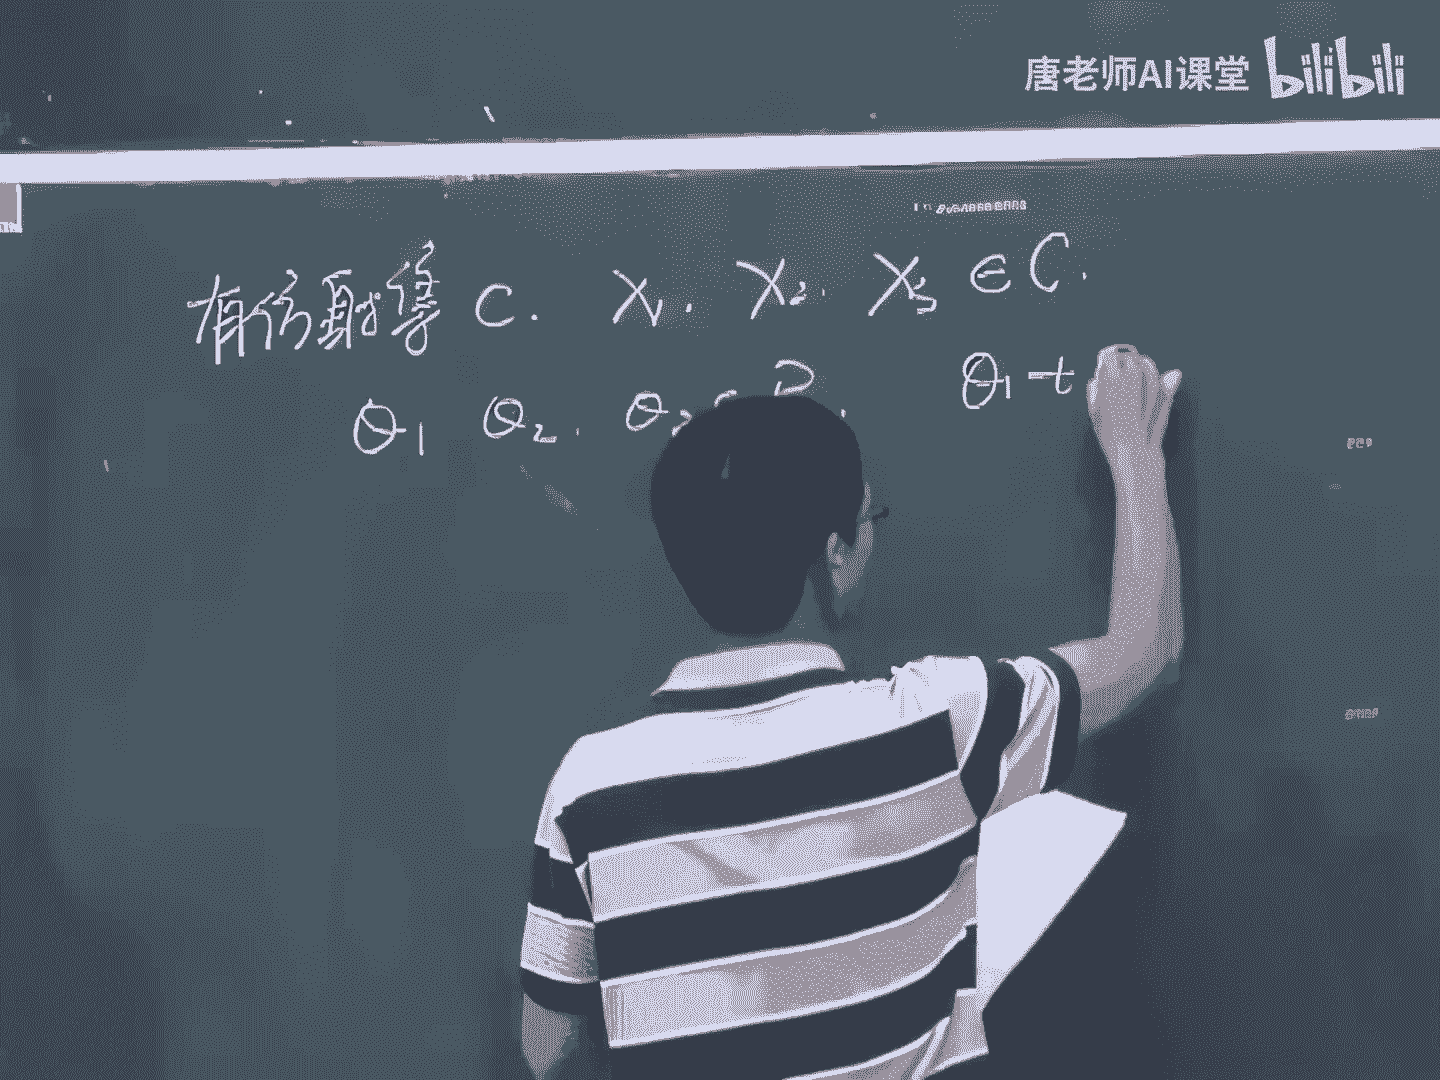 唐老师AI课堂 bilibili
有仿射集 C. X₁. X₂. X₃ ∈ C.
θ₁ θ₂. θ₃ θ₁ + t